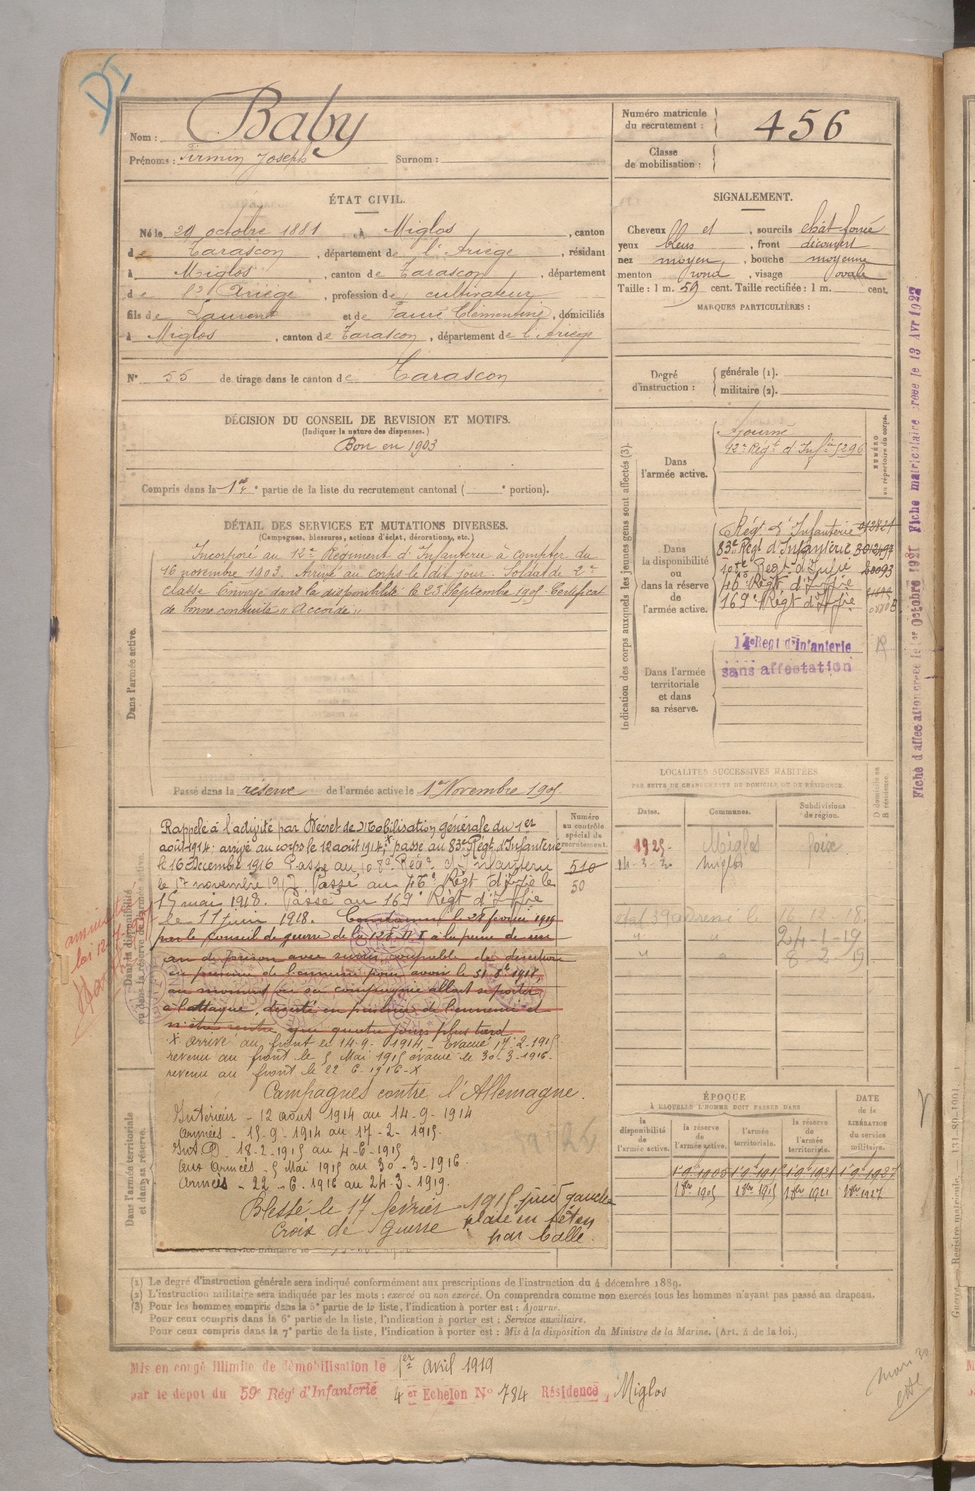 Nom : Baby
Prénoms : Firmin Joseph Surnom :
Numéro matricule
du recrutement : 456
Classe
de mobilisation :
ÉTAT CIVIL.
Né le 29 octobre 1881, à Miglos, canton
de Tarascon, département de l'Ariège, résidant
à Miglos, canton de Tarascon, département
de Ariège, profession de cultivateur
fils de Laurent et de Faure Clémentine, domiciliés
à Miglos, canton de Tarascon, département de l'Ariège
N° 55 de tirage dans le canton de Tarascon
DÉCISION DU CONSEIL DE REVISION ET MOTIFS.
(Indiquer la nature des dispenses.)
Bon en 1903
Compris dans la 1re partie de la liste du recrutement cantonal ( e portion).
SIGNALEMENT.
Cheveux et, sourcils chât. foncé
yeux bleus, front découvert
nez moyen, bouche moyenne
menton rond, visage ovale
Taille : 1 m. 59 cent. Taille rectifiée : 1 m. cent.
MARQUES PARTICULIÈRES :
Degré
d'instruction :
générale (1).
militaire (2).
DÉTAIL DES SERVICES ET MUTATIONS DIVERSES.
(Campagnes, blessures, actions d'éclat, décorations, etc.)
Dans l'armée active.
Incorporé au 12e Régiment d'Infanterie à compter du
16 novembre 1903. Arrivé au corps le dit jour. Soldat de 2e
classe. Envoyé dans la disponibilité le 23 Septembre 1905. Certificat
de bonne conduite "Accordé"
Passé dans la réserve de l'armée active le 1er Novembre 1905
Indication des corps auxquels les jeunes gens sont affectés (3).
NUMÉRO
au répertoire du corps.
Dans
l'armée active.
Ajourné
12e Régt d'Infie 5296
Dans
la disponibilité
ou
dans la réserve
de
l'armée active.
Régt d'Infanterie
83e Régt d'Infanterie
108e Régt d'Infie
46e Régt d'Infie
169e Régt d'Infie
Dans l'armée
territoriale
et dans
sa réserve.
14e Regt d'Infanterie
sans affectation
Fiche d'affectation créée le 1er Octobre 1921 Fiche matriculaire créée le 13 Avr 1922
LOCALITÉS SUCCESSIVES HABITÉES
PAR SUITE DE CHANGEMENTS DE DOMICILE OU DE RÉSIDENCE.
Dates.
Communes.
Subdivisions
de région.
D domicile ou
R résidence.
1925 Miglos Foix
Miglos
16-12-18
24-1-19
8-2-19
Dans la disponibilité
ou dans la réserve de l'armée active.
Numéro
au contrôle
spécial du
recrutement.
510
50
Rappelé à l'activité par Décret de Mobilisation générale du 1er
août 1914; arrivé au corps le 12 août 1914; x passé au 83e Régt d'Infanterie
le 16 Décembre 1916. Passé au 108e Régt d'Infanterie
le 1er novembre 1917. Passé au 46e Régt d'Infie le
15 mai 1918. Passé au 169e Régt d'Infie
le 11 juin 1918. Condamné le 28 février 1919
par le conseil de guerre de la 128e D I à la peine de un
an de prison avec sursis coupable de désertion
en présence de l'ennemi pour avoir le 31 8bre 1918,
au moment où sa compagnie allait se porter
à l'attaque, déserté en présence de l'ennemi et
n'être rentré que quatre jours plus tard
x arrivé au front le 14-9-1914 - évacué 17-2-1915
revenu au front le 5 Mai 1915 évacué le 30-3-1916.
revenu au front le 22-6-1916-x
Campagnes contre l'Allemagne.
Intérieur - 12 août 1914 au 14-9-1914
Armées - 15-9-1914 au 17-2-1915
Int B - 18-2-1915 au 4-5-1915
Aux Armées - 5 Mai 1915 au 30-3-1916
Armées - 22-6-1916 au 24-3-1919.
Blessé le 17 février 1915 pied gauche
plaie en séton
par balle.
Croix de Guerre
Dans l'armée territoriale
et dans sa réserve.
ÉPOQUE
À LAQUELLE L'HOMME DOIT PASSER DANS
DATE
de la
LIBÉRATION
du service
militaire.
la
disponibilité
de
l'armée active.
la réserve
de
l'armée active.
l'armée
territoriale.
la réserve
de
l'armée
territoriale.
1 9 1905 1 9 1915 1 9 1921 1 9 1927
1 8bre 1905 1 8bre 1915 1 8bre 1921 1 8bre 1927
(1) Le degré d'instruction générale sera indiqué conformément aux prescriptions de l'instruction du 4 décembre 1889.
(2) L'instruction militaire sera indiquée par les mots : exercé ou non exercé. On comprendra comme non exercés tous les hommes n'ayant pas passé au drapeau.
(3) Pour les hommes compris dans la 5e partie de la liste, l'indication à porter est : Ajourné.
Pour ceux compris dans la 6e partie de la liste, l'indication à porter est : Service auxiliaire.
Pour ceux compris dans la 7e partie de la liste, l'indication à porter est : Mis à la disposition du Ministre de la Marine. (Art. 4 de la loi.)
Mis en congé illimité de démobilisation le 1er avril 1919
par le dépôt du 59e Régt d'Infanterie 4e Echelon N° 784 Résidence, Miglos